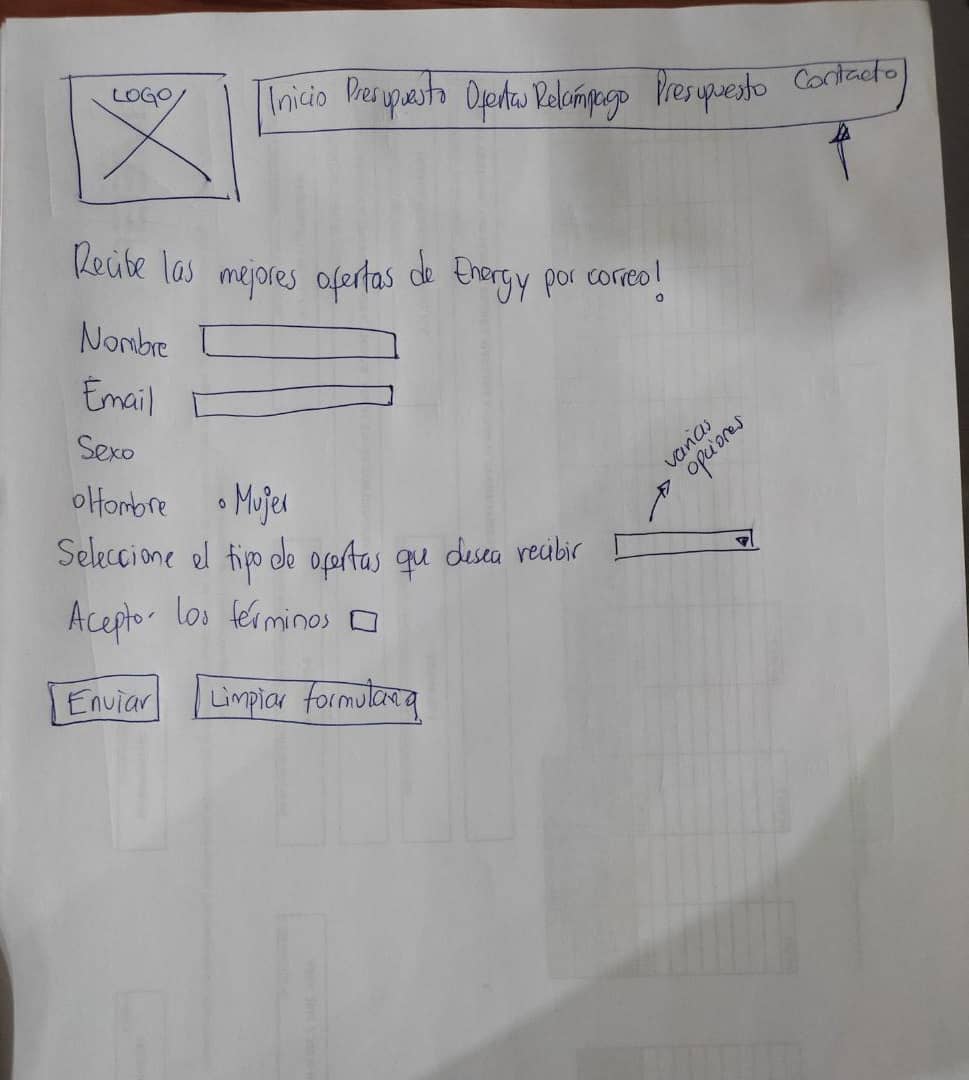 LOGO
Inicio Presupuesto Ofertas Relámpago Presupuesto Contacto
Recibe las mejores ofertas de Energy por correo!
Nombre
Email
Sexo
Hombre Mujer
varias
opciones
Seleccione el tipo de ofertas que desea recibir
Acepto los términos
Enviar Limpiar formulario